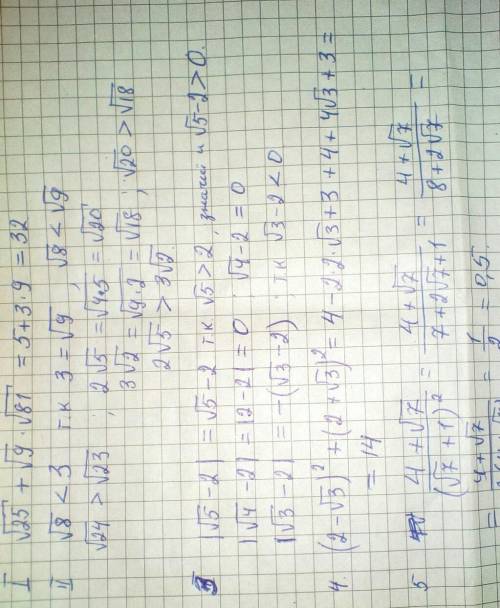 I √25 + √9 · √81 = 5+3·9 = 32
II √8 < 3 т.к 3 = √9, √8 < √9
√24 > √23; 2√5 = √4·5 = √20
3√2 = √9·2 = √18; √20 > √18
2√5 > 3√2.
3 |√5-2| = √5-2 т.к √5>2, значит и √5-2>0.
|√4-2| = |2-2| = 0 . √4-2 = 0
|√3-2| = -(√3-2) т.к √3-2<0
4. (2-√3)² + (2+√3)² = 4-2·2·√3+3+4+4√3+3 =
= 14
5 4+√7/(√7+1)² = 4+√7/7+2√7+1 = 4+√7/8+2√7 =
= 4+√7/ = 1/2 = 0,5.